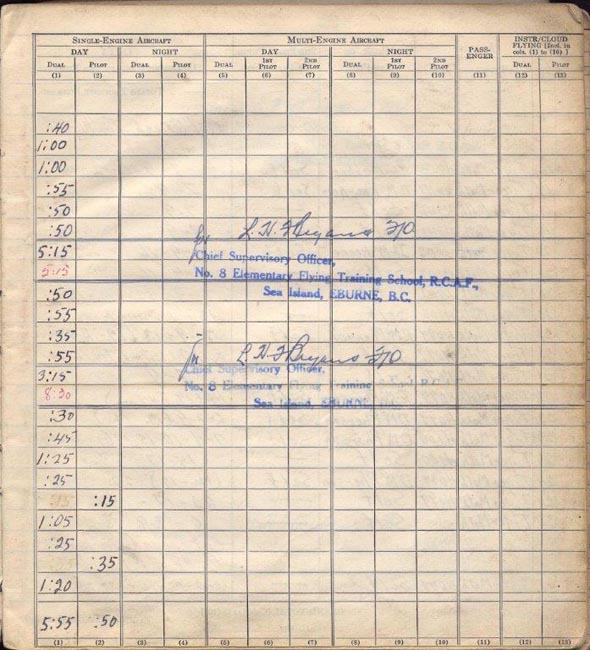 SINGLE-ENGINE AIRCRAFT MULTI-ENGINE AIRCRAFT PASS-ENGER INSTR/CLOUD FLYING [Incl. in cols. (1) to (10)]
DAY NIGHT DAY NIGHT
DUAL PILOT DUAL PILOT DUAL 1ST PILOT 2ND PILOT DUAL 1ST PILOT 2ND PILOT DUAL PILOT
(1) (2) (3) (4) (5) (6) (7) (8) (9) (10) (11) (12) (13)
:40
1:00
1:00
:55
:50
:50 for L. H. F/O
5:15 Chief Supervisory Officer,
5:15 No. 8 Elementary Flying Training School, R.C.A.F.,
:50 Sea Island, EBURNE, B.C.
:55
:35
:55 for L H F/O
3:15 Chief Supervisory Officer,
8:30 No. 8 Elementary Flying Training School R.C.A.F.
:30 Sea Island, EBURNE
:45
1:25
:25
:15 :15
1:05
:25
:35
1:20
5:55 :50
(1) (2) (3) (4) (5) (6) (7) (8) (9) (10) (11) (12) (13)